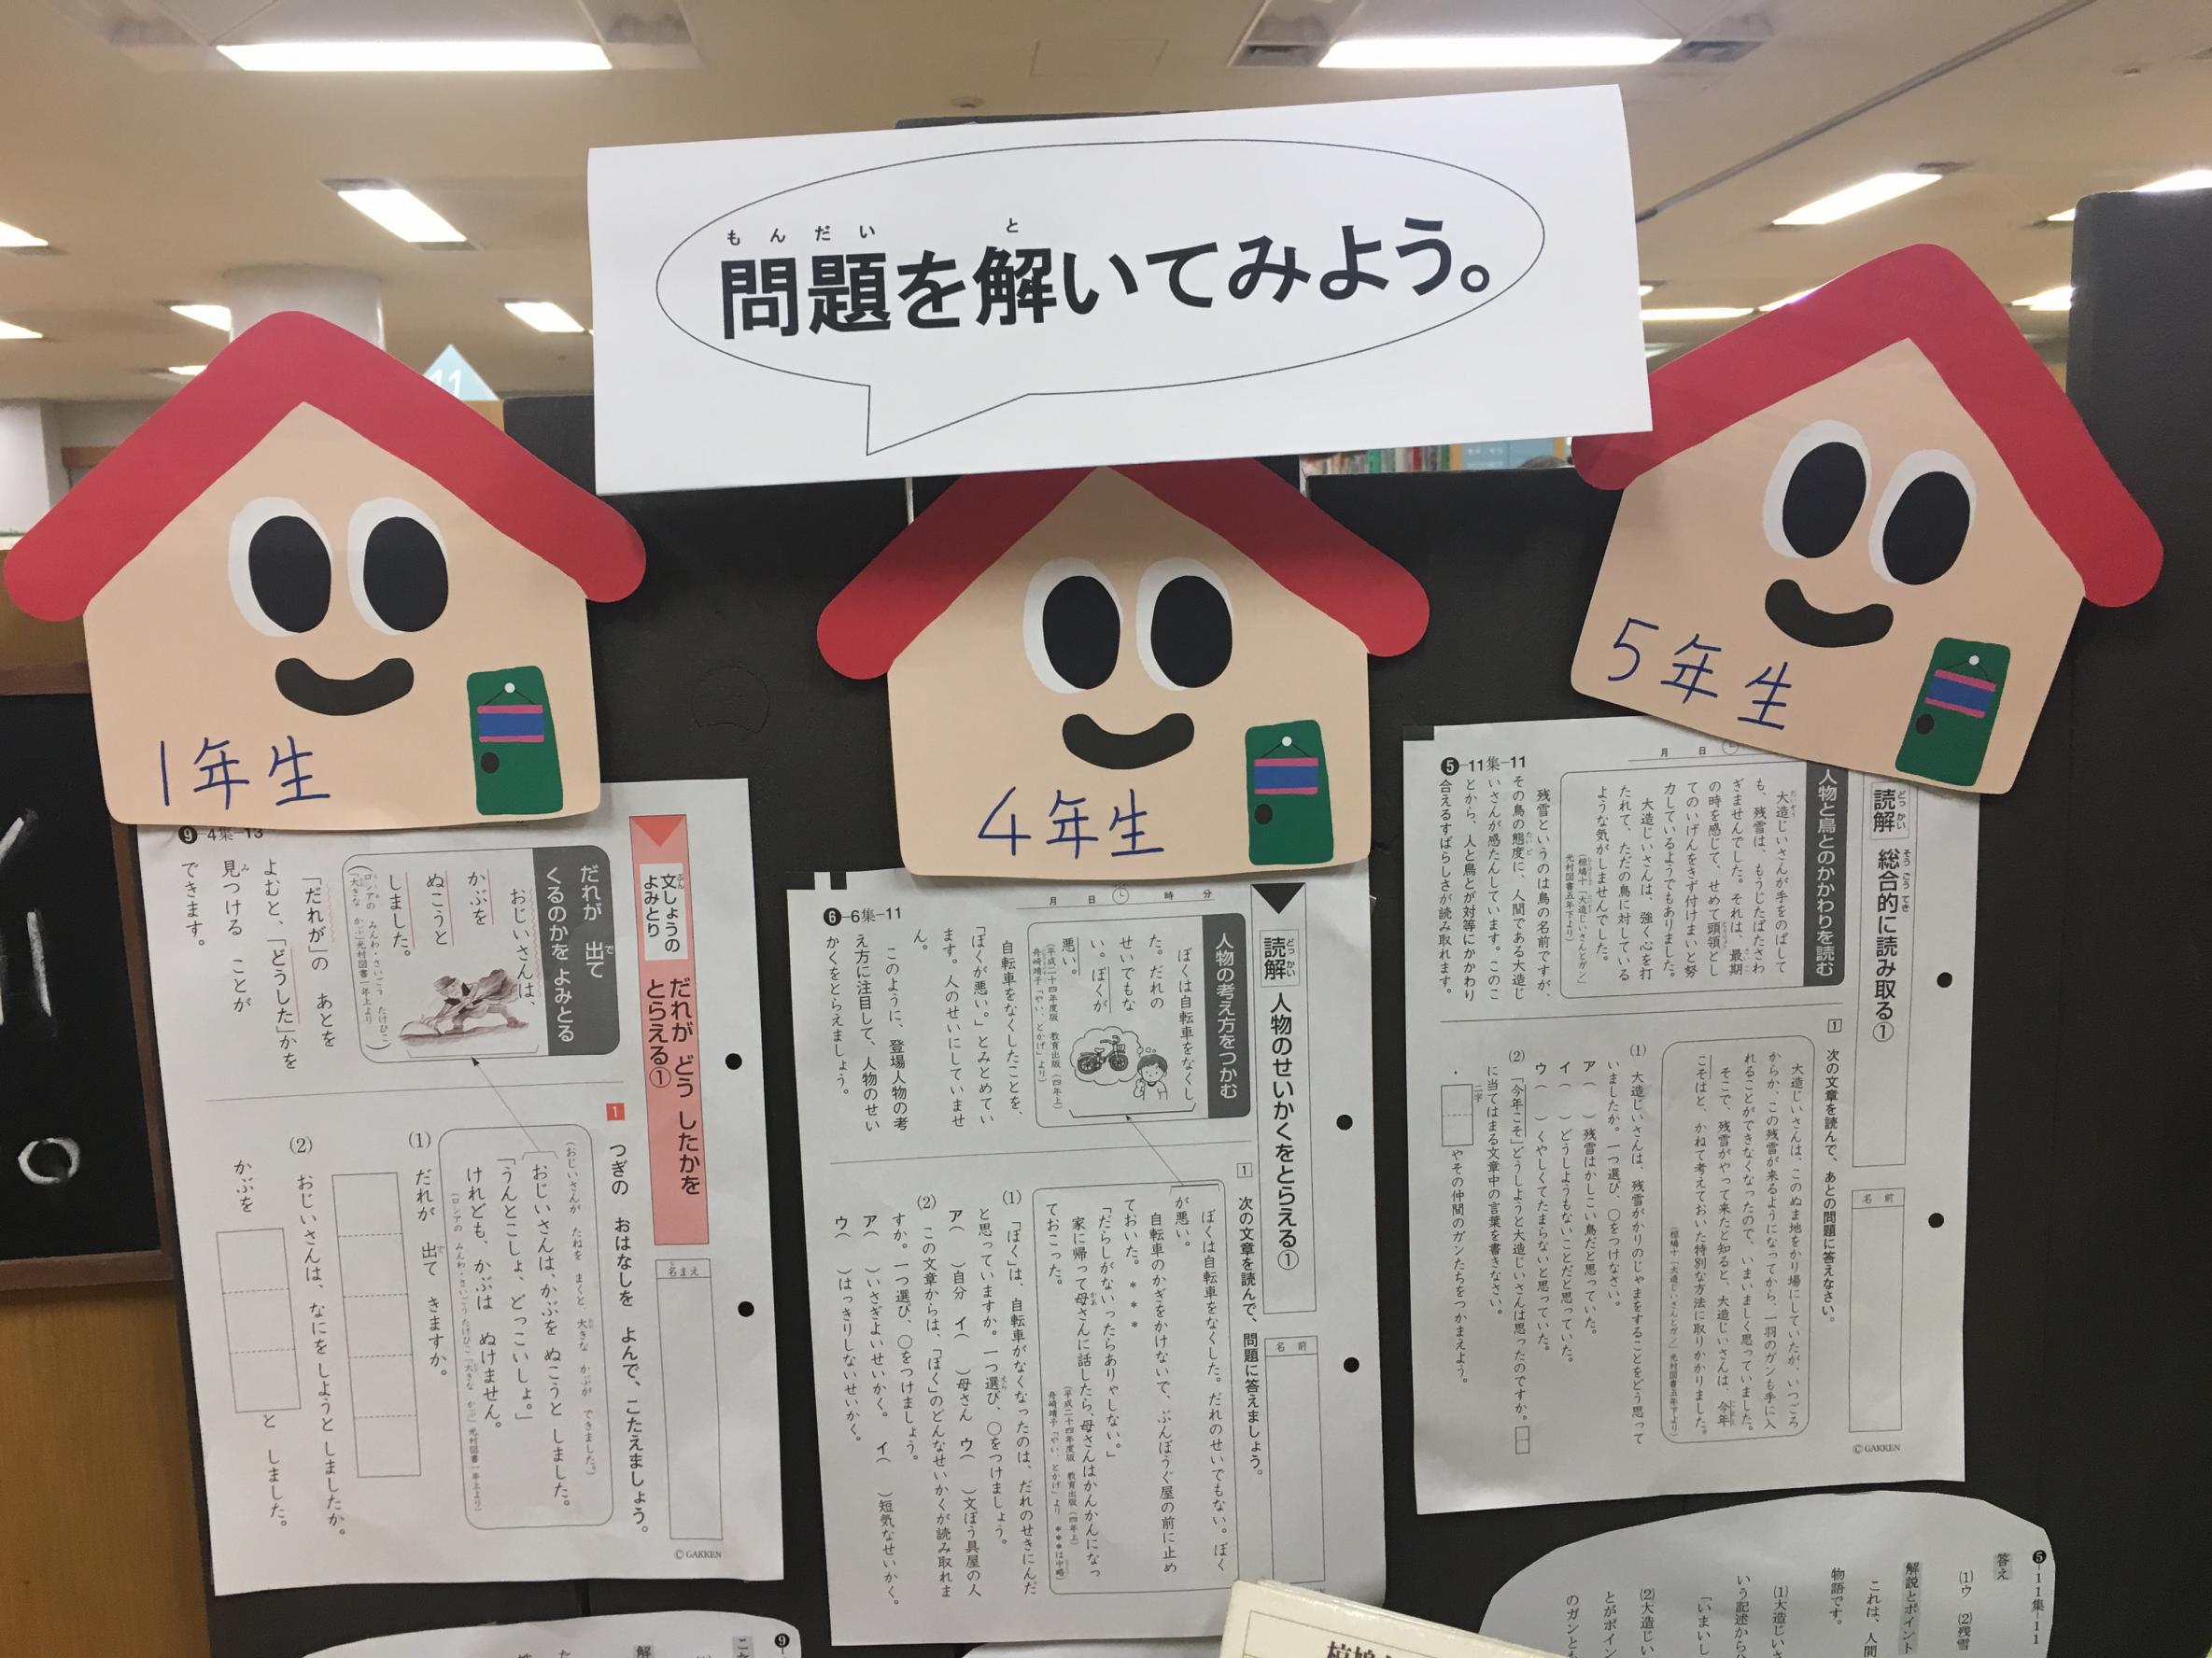 問題を解いてみよう。
もんだい
と
11
1年生
❾-4集-13
文しょうの
よみとり
だれが どう したかを
とらえる①
名まえ
だれが 出て
くるのかを よみとる
おじいさんは、
かぶを
ぬこうと
しました。
「だれが」の あとを
よむと、「どうした」かを
見つける ことが
できます。
1 つぎの おはなしを よんで、こたえましょう。
(おじいさんが たねを まくと、大きな かぶが できました。)
おじいさんは、かぶを ぬこうと しました。
「うんとこしょ、どっこいしょ。」
けれども、かぶは ぬけません。
(1) だれが 出て きますか。
(2) おじいさんは、なにを しようと しましたか。
かぶを
と しました。
©GAKKEN
4年生
❻-6集-11
月 日 時 分
読解 人物のせいかくをとらえる①
名前
人物の考え方をつかむ
ぼくは自転車をなくし
た。だれの
せいでもな
い。ぼくが
悪い。
自転車をなくしたことを、
「ぼくが悪い。」とみとめてい
ます。人のせいにしていませ
ん。
このように、登場人物の考
え方に注目して、人物のせい
かくをとらえましょう。
1 次の文章を読んで、問題に答えましょう。
ぼくは自転車をなくした。だれのせいでもない。ぼく
が悪い。
自転車のかぎをかけないで、ぶんぼうぐ屋の前に止め
ておいた。 * * *
「だらしがないったらありゃしない。」
家に帰って母さんに話したら、母さんはかんかんになっ
ておこった。
(1) 「ぼく」は、自転車がなくなったのは、だれのせきにんだ
と思っていますか。一つ選び、○をつけましょう。
ア( )自分 イ( )母さん ウ( )文ぼう具屋の人
(2) この文章からは、「ぼく」のどんなせいかくが読み取れま
すか。一つ選び、○をつけましょう。
ア( )いさぎよいせいかく。 イ( )短気なせいかく。
ウ( )はっきりしないせいかく。
5年生
❺-11集-11
月 日
読解 総合的に読み取る①
名前
人物と鳥とのかかわりを読む
大造じいさんが手をのばして
も、残雪は、もうじたばたさわ
ぎませんでした。それは、最期
の時を感じて、せめて頭領とし
てのいげんをきず付けまいと努
力しているようでもありました。
大造じいさんは、強く心を打
たれて、ただの鳥に対している
ような気がしませんでした。
残雪というのは鳥の名前ですが、
その鳥の態度に、人間である大造じ
いさんが感たんしています。このこ
とから、人と鳥とが対等にかかわり
合えるすばらしさが読み取れます。
1 次の文章を読んで、あとの問題に答えなさい。
大造じいさんは、このぬま地をかり場にしていたが、いつごろ
からか、この残雪が来るようになってから、一羽のガンも手に入
れることができなくなったので、いまいましく思っていました。
そこで、残雪がやって来たと知ると、大造じいさんは、今年
こそはと、かねて考えておいた特別な方法に取りかかりました。
(1) 大造じいさんは、残雪がかりのじゃまをすることをどう思って
いましたか。一つ選び、○をつけなさい。
ア( )残雪はかしこい鳥だと思っていた。
イ( )どうしようもないことだと思っていた。
ウ( )くやしくてたまらないと思っていた。
(2) 「今年こそ」どうしようと大造じいさんは思ったのですか。
に当てはまる文章中の言葉を書きなさい。
・ 二字 やその仲間のガンたちをつかまえよう。
©GAKKEN
❺-11集-11
答え
(1)ウ (2)残雪
解説とポイント
これは、人間
物語です。
(1)大造じいさ
いう記述から
「いまいまし
(2)大造じい
とがポイン
のガンた
❾